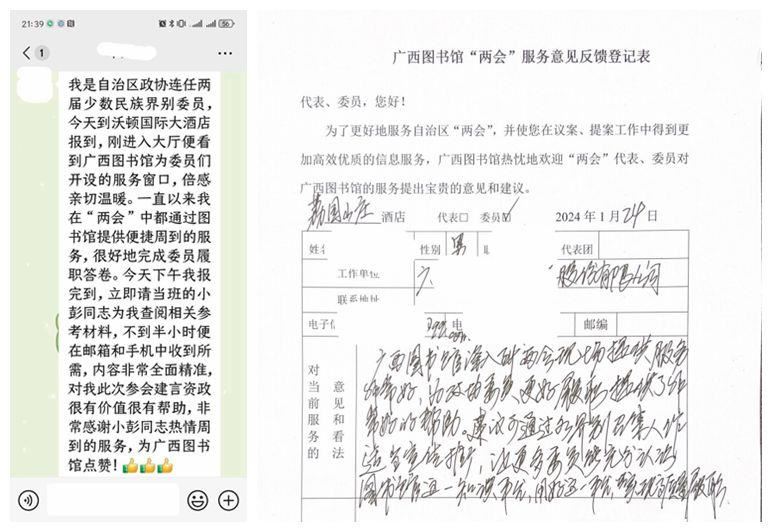 21:39
56
1
我是自治区政协连任两
届少数民族界别委员，
今天到沃顿国际大酒店
报到，刚进入大厅便看
到广西图书馆为委员们
开设的服务窗口，倍感
亲切温暖。一直以来我
在“两会”中都通过图
书馆提供便捷周到的服
务，很好地完成委员履
职答卷。今天下午我报
完到，立即请当班的小
彭同志为我查阅相关参
考材料，不到半小时便
在邮箱和手机中收到所
需，内容非常全面精准，
对我此次参会建言资政
很有价值很有帮助，非
常感谢小彭同志热情周
到的服务，为广西图书
馆点赞！👍👍👍
广西图书馆“两会”服务意见反馈登记表
代表、委员，您好！
为了更好地服务自治区“两会”，并使您在议案、提案工作中得到更
加高效优质的信息服务，广西图书馆热忱地欢迎“两会”代表、委员对
广西图书馆的服务提出宝贵的意见和建议。
荔园山庄 酒店 代表□ 委员☑ 2024 年 1 月 24 日
性别 男 代表团
工作单位 广 股份有限公司
联系地址
电子 电 邮编
对当前服务的意见和看法
广西图书馆深入到两会现场提供服务
非常好，为政协委员更好履职提供了非
常好的帮助。建议可通过各界别召集人作
适当宣传推介，让更多委员能充分认识
图书馆这一知识平台，用好这一平台，